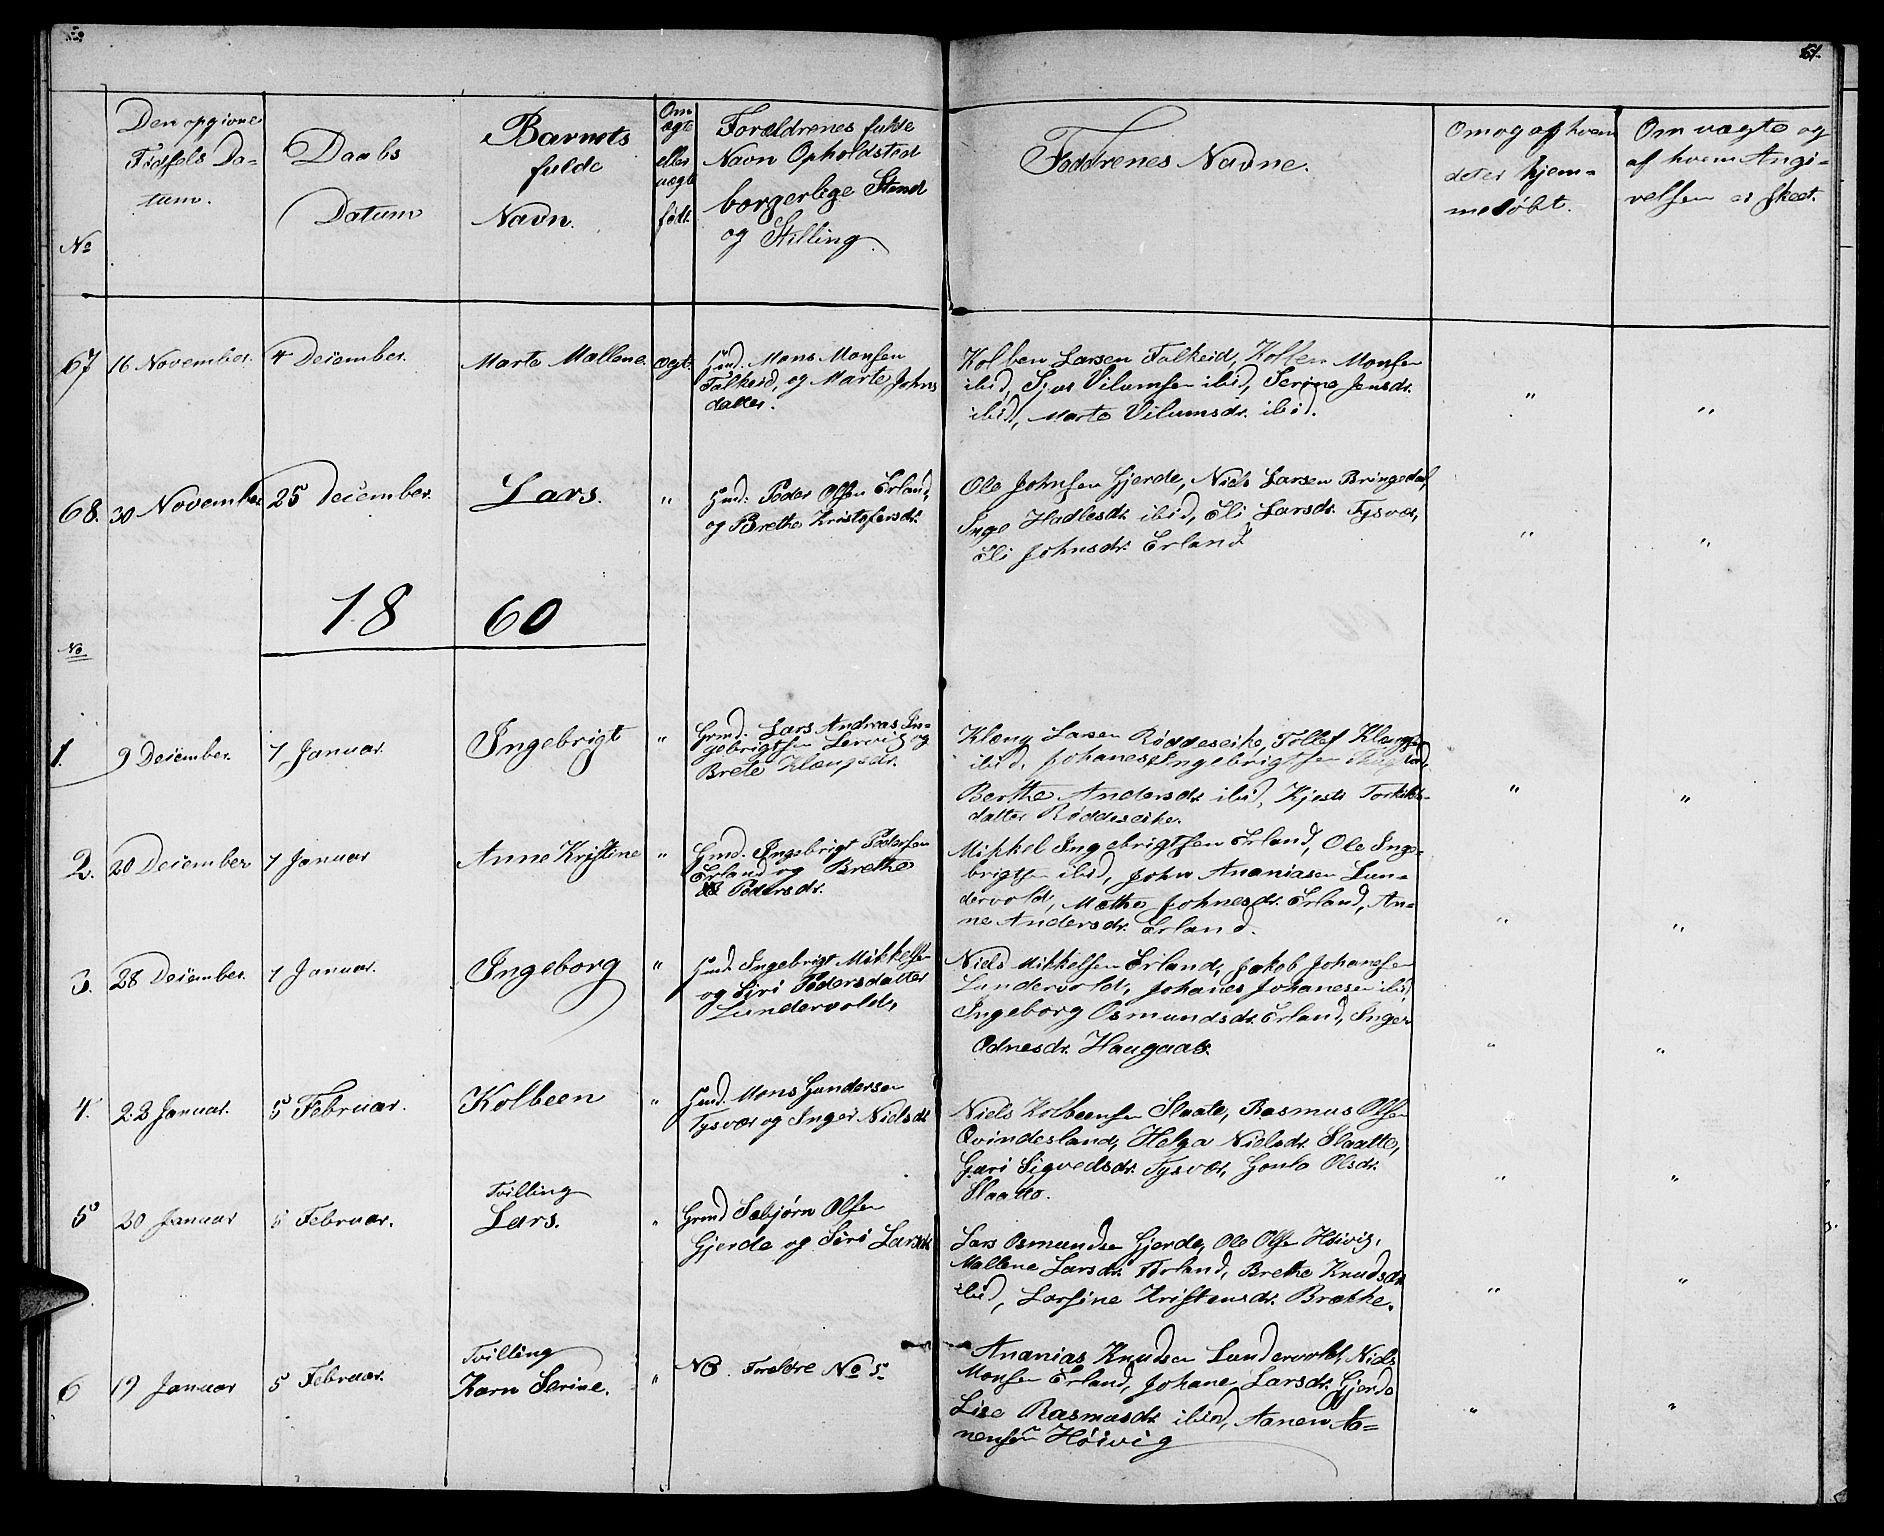 51.
No
Den opgivne
Fødsels Da-
tum.
Daabs
Datum
Barnets
fulde
Navn.
Om
ægte
eller
uægte
født.
Forældrenes fulde
Navn Opholdsted
borgerlige Stand
og Stilling.
Faddrenes Navne.
Om og af hvem
det er hjem-
medøbt.
Om vægte og
af hvem Angi-
velsen er skeet.
67 16 November. 4 December. Marte Mallene. Ægt.
Gmd. Mons Monsen
Falkeid, og Marte Johns
datter.
Kolben Larsen Falkeid, Kolben Monsen
ibid, Sjur Vilumsen ibid, Serine Jensdr.
ibid, Marte Vilumsdr. ibid.
" "
68. 30 November 25 December. Lars. "
Gmd: Peder Olsen Erland,
og Brethe Kristofersdr.
Ole Johnsen Gjerde, Niels Larsen Bringedal,
Inge Hadlesdr. ibid, Eli Larsdr. Tysvær,
Eli Johnsdr. Erland
" "
18 60
No
1. 9 December. 7 Januar. Ingebrigt "
Gmd. Lars Andreas In-
gebrigtsen Lervig og
Brete Klængsdr.
Klæng Larsen Røddeseike, Tollef Klængsen
ibid, Johanes Ingebrigtsen
Berthe Andersdr. ibid, Kjesti Torkilds-
datter Røddeseike.
" "
2. 20 December 7 Januar Anne Kristine "
Gmd. Ingebrigt Pedersen
Erland og Brethe
Pedersdr.
Mikkel Ingebrigtsen Erland, Ole Inge-
brigtsen ibid, John Ananiasen Lun-
dervold, Mæthe Johnesdr. Erland, An-
ne Andersdr. Erland.
" "
3. 28 December. 7 Januar. Ingeborg "
Gmd. Ingebrigt Mikkelsen
og Siri Pedersdatter
Lundervold,
Niels Mikkelsen Erland, Jakob Johanesen
Lundervold, Johanes Johanesen ibid,
Ingeborg Osmundsdr. Erland, Inger
Odnesdr. Haugaas.
" "
4. 22 Januar. 5 Februar. Kolbeen "
Gmd. Mons Gundersen
Tysvær og Inger Nielsdr.
Niels Kolbeensen Slaate, Rasmus Olsen
Qvindesland, Helga Nielsdr. Slaatte,
Guri Sigvedsdr. Tysvær, Gonla Olsdr.
Slaatto.
" "
5 20 Januar 5 Februar.
Tvilling
Lars. "
Grmd Sæbjørn Olsen
Gjerde og Siri Larsdr.
Lars Osmundsen Gjerde, Ole Olsen Høivig,
Mallene Larsdr. Erland, Brethe Knudsdr.
ibid, Larsine Kristensdr. Brække.
" "
6 19 Januar 5 Februar.
Tvilling
Karn Serine. "
NB. Forældre No 5.
Ananias Knudsen Lundervold, Niels
Monsen Erland, Johane Larsdr. Gjerde
Lise Rasmusdr. ibid, Aanen Aa-
nensen Høivig
" "